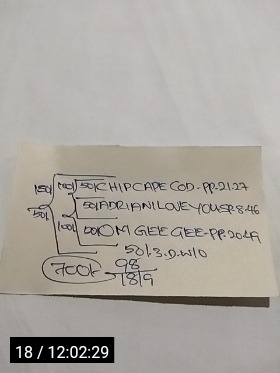 150/ 100/ 50/ CHIP CAPE COD-PP.21.27
50/ ADRIANILOVEYOUSP.8-46
50/ 100/ 50/ OM GEE GEE-PP.20.49
50/.3.D.W/O
700/- 98
18/9
18 / 12:02:29